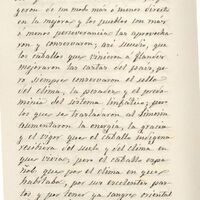 geron de un modo más ó menos directo
en la mejora y los pueblos con más
ó menos perseverancia las aprovecha-
ron y conservaron; así sucedió, que
los caballos que vinieron a
mejoraron las castas del país, pe-
ro siempre conservaron el sello
del clima, la pesadez y el predo-
minio del sistema linfático; pero
los que se trasladaron al
aumentaron la energía, la gracia
y el vigor que el caballo indígena
recibiera del suelo y del clima en
que vivia; pero el caballo espa-
ñol que por el clima en que
habitaba, por sus excelentes pas-
tos y por tener ya sangre oriental